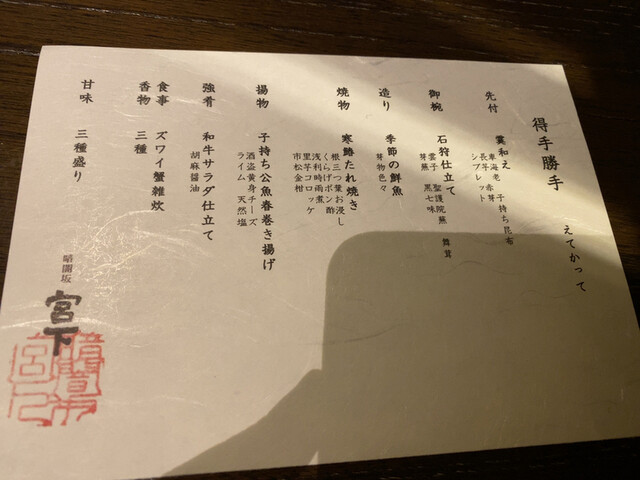 得手勝手 えてかって
先付 霙和え
車海老 赤芽 子持ち昆布
長芋 レット
シブレット
御椀 石狩仕立て
雲子 聖護院蕪 舞茸
芽蕪 黒七味
造り 季節の鮮魚
芽物色々
焼物 寒鰆たれ焼き
根三つ葉お浸し
くらげポン酢
浅利時雨煮
里芋コロッケ
市松金柑
揚物 子持ち公魚春巻き揚げ
酒盗黄身チーズ
ライム 天然塩
強肴 和牛サラダ仕立て
胡麻醤油
食事 ズワイ蟹雑炊
香物 三種
甘味 三種盛り
暗闇坂 宮下